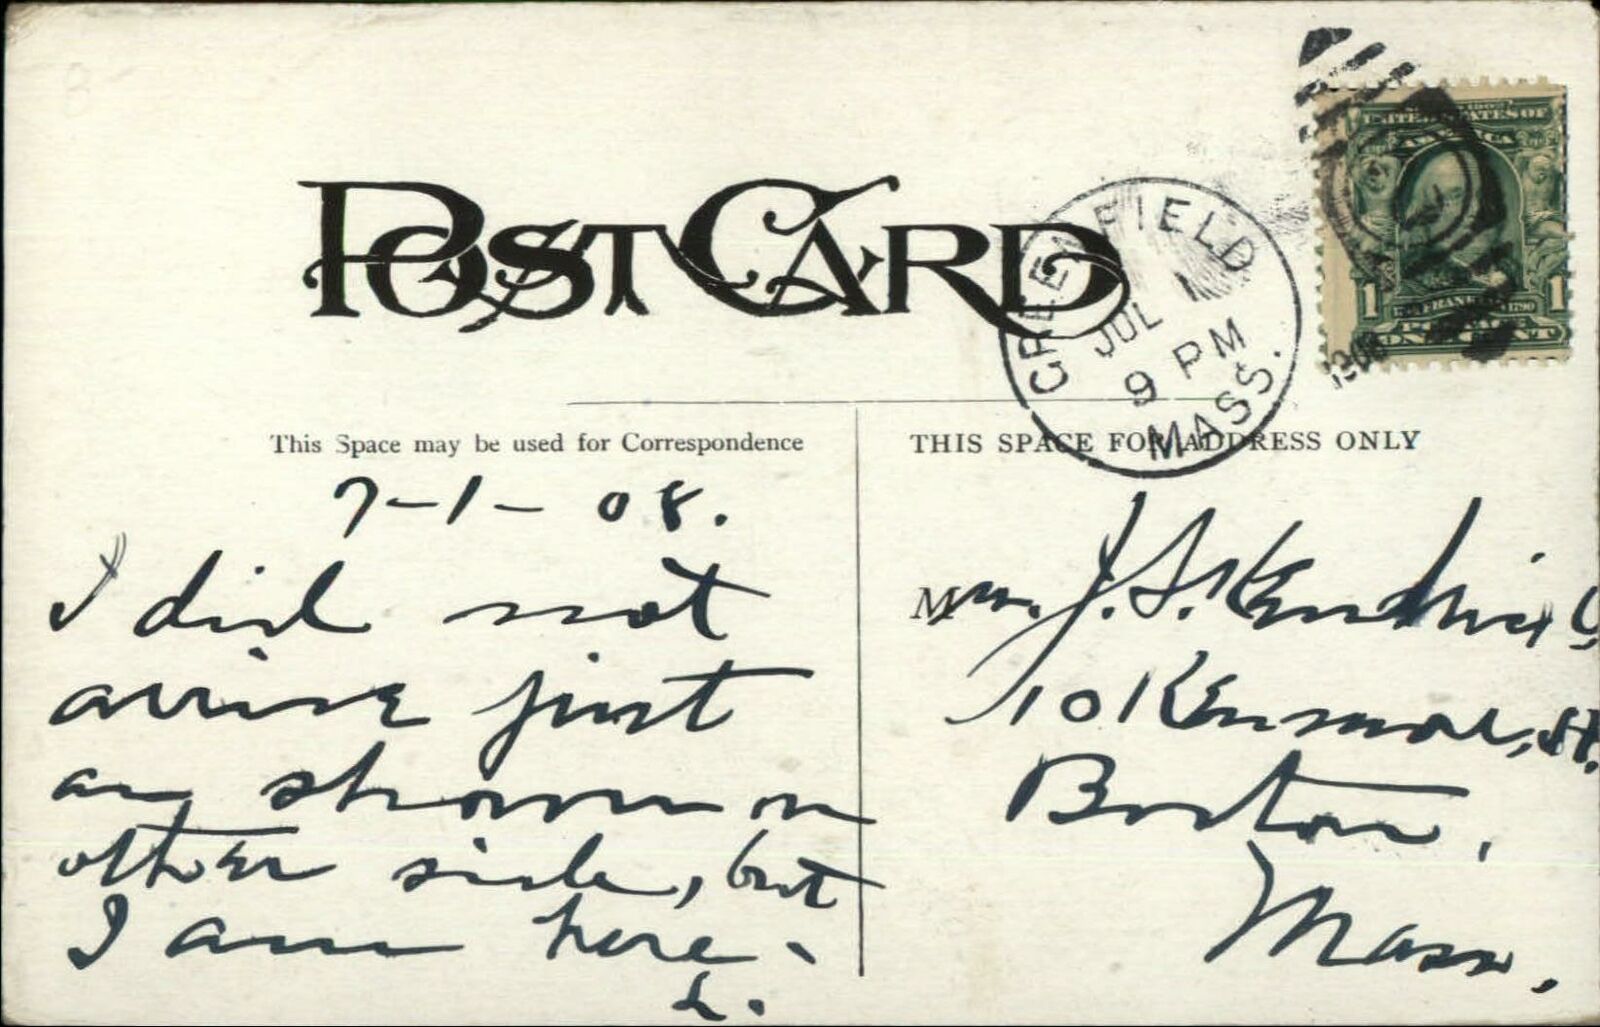 POST CARD
GREENFIELD
JUL 1
9 PM
MASS.
UNITED STATES OF
AMERICA
1 FRANKLIN 1790 1
ONE CENT
This Space may be used for Correspondence
THIS SPACE FOR ADDRESS ONLY
7-1-08.
I did not
arrive just
as shown on
other side, but
I am here.
L.
Mrs. J. S. Kendrick,
10 Kenmore, St.
Boston,
Mass.